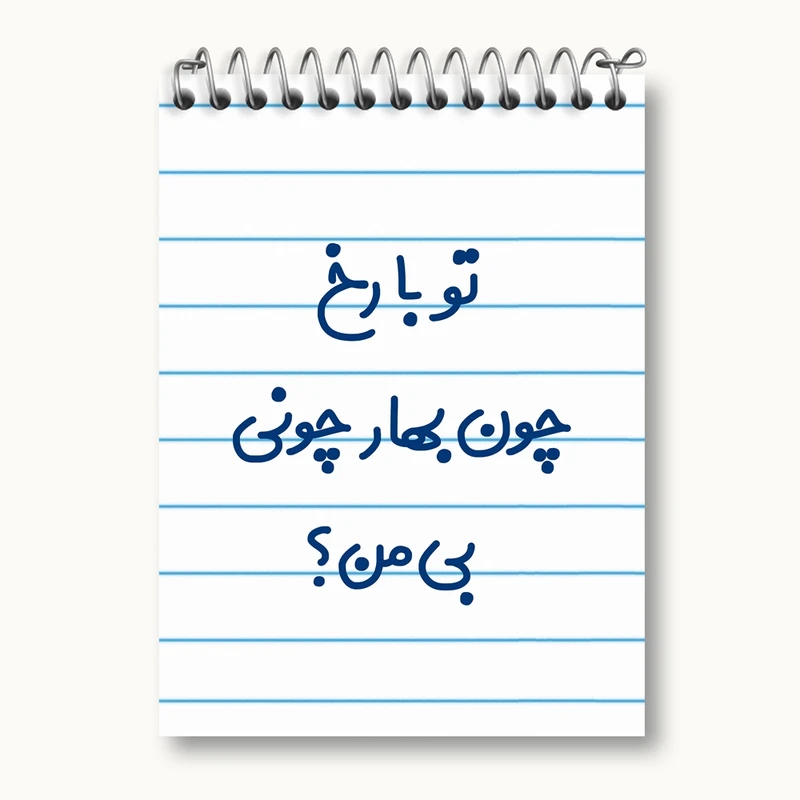 تو با رخ
چون بهار چونی
بی من؟